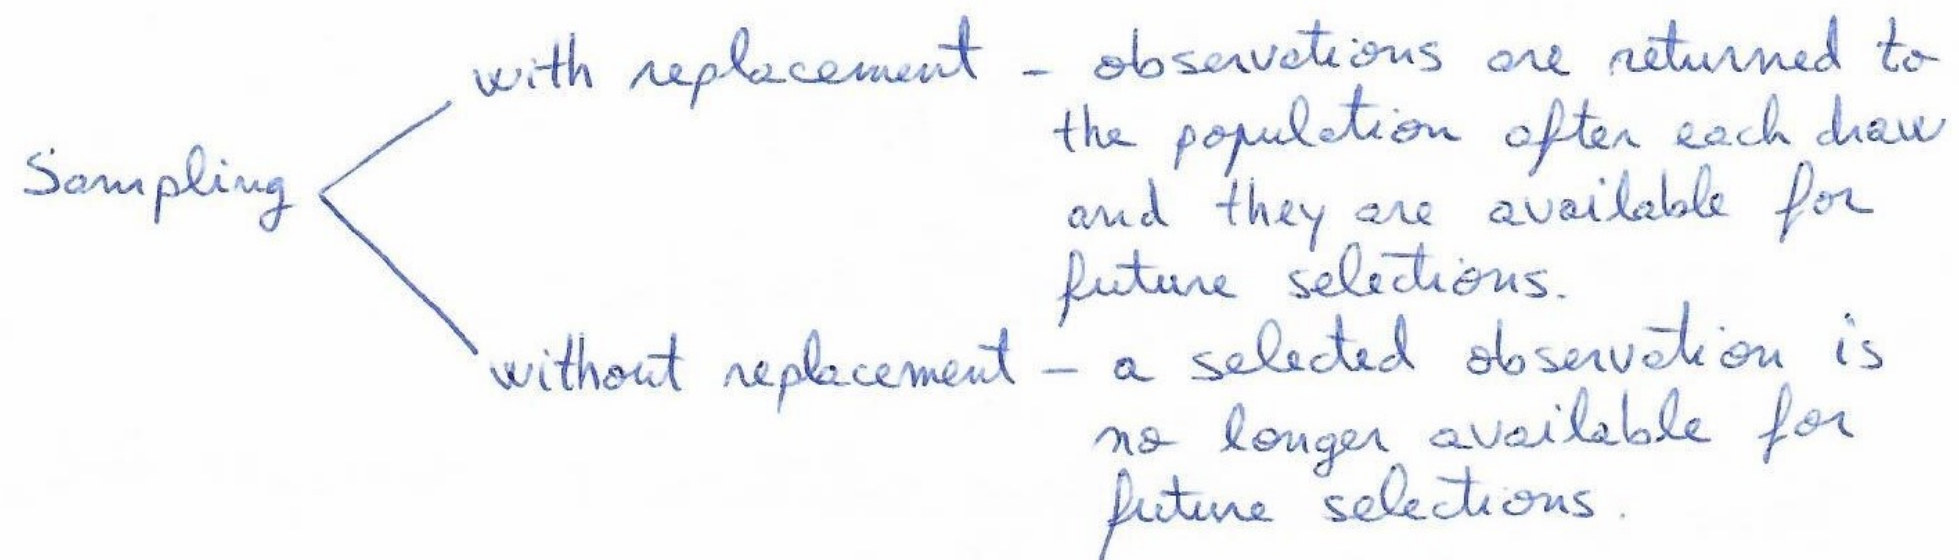 with replacement - observations are returned to
the population after each draw
and they are available for
future selections.
Sampling
without replacement - a selected observation is
no longer available for
future selections.